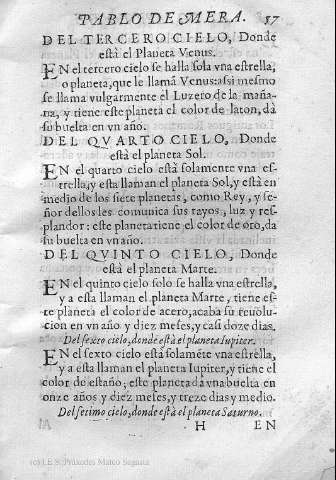 PABLO DE MERA. 57
DEL TERCERO CIELO, Donde
està el Planeta Venus.
EN el tercero cielo se halla sola vna estrella,
o planeta, que le llamã Venus: assi mesmo
se llama vulgarmente el Luzero de la maña-
na, y tiene este planeta el color de laton, dà
su buelta en vn año.
DEL QVARTO CIELO, Donde
està el planeta Sol.
EN el quarto cielo està solamente vna es-
trella, y esta llaman el planeta Sol, y està en
medio de los siete planetas, como Rey, y se-
ñor dellos les comunica sus rayos, luz y res-
plandor: este planeta tiene el color de oro, da
su buelta en vn año.
DEL QVINTO CIELO, Donde
està el planeta Marte.
EN el quinto cielo solo se halla vna estrella,
y a esta llaman el planeta Marte, tiene es-
te planeta el color de acero, acaba su reuolu-
cion en vn año y diez meses, y casi doze dias.
Del sexto cielo, donde està el planeta Iupiter.
EN el sexto cielo està solamẽte vna estrella,
y a esta llaman el planeta Iupiter, y tiene el
color de estaño; este planeta dà vna buelta en
onze años y diez meses, y treze dias y medio.
Del setimo cielo, donde està el planeta Saturno.
H EN
(c) I.E.S. Práxedes Mateo Sagasta